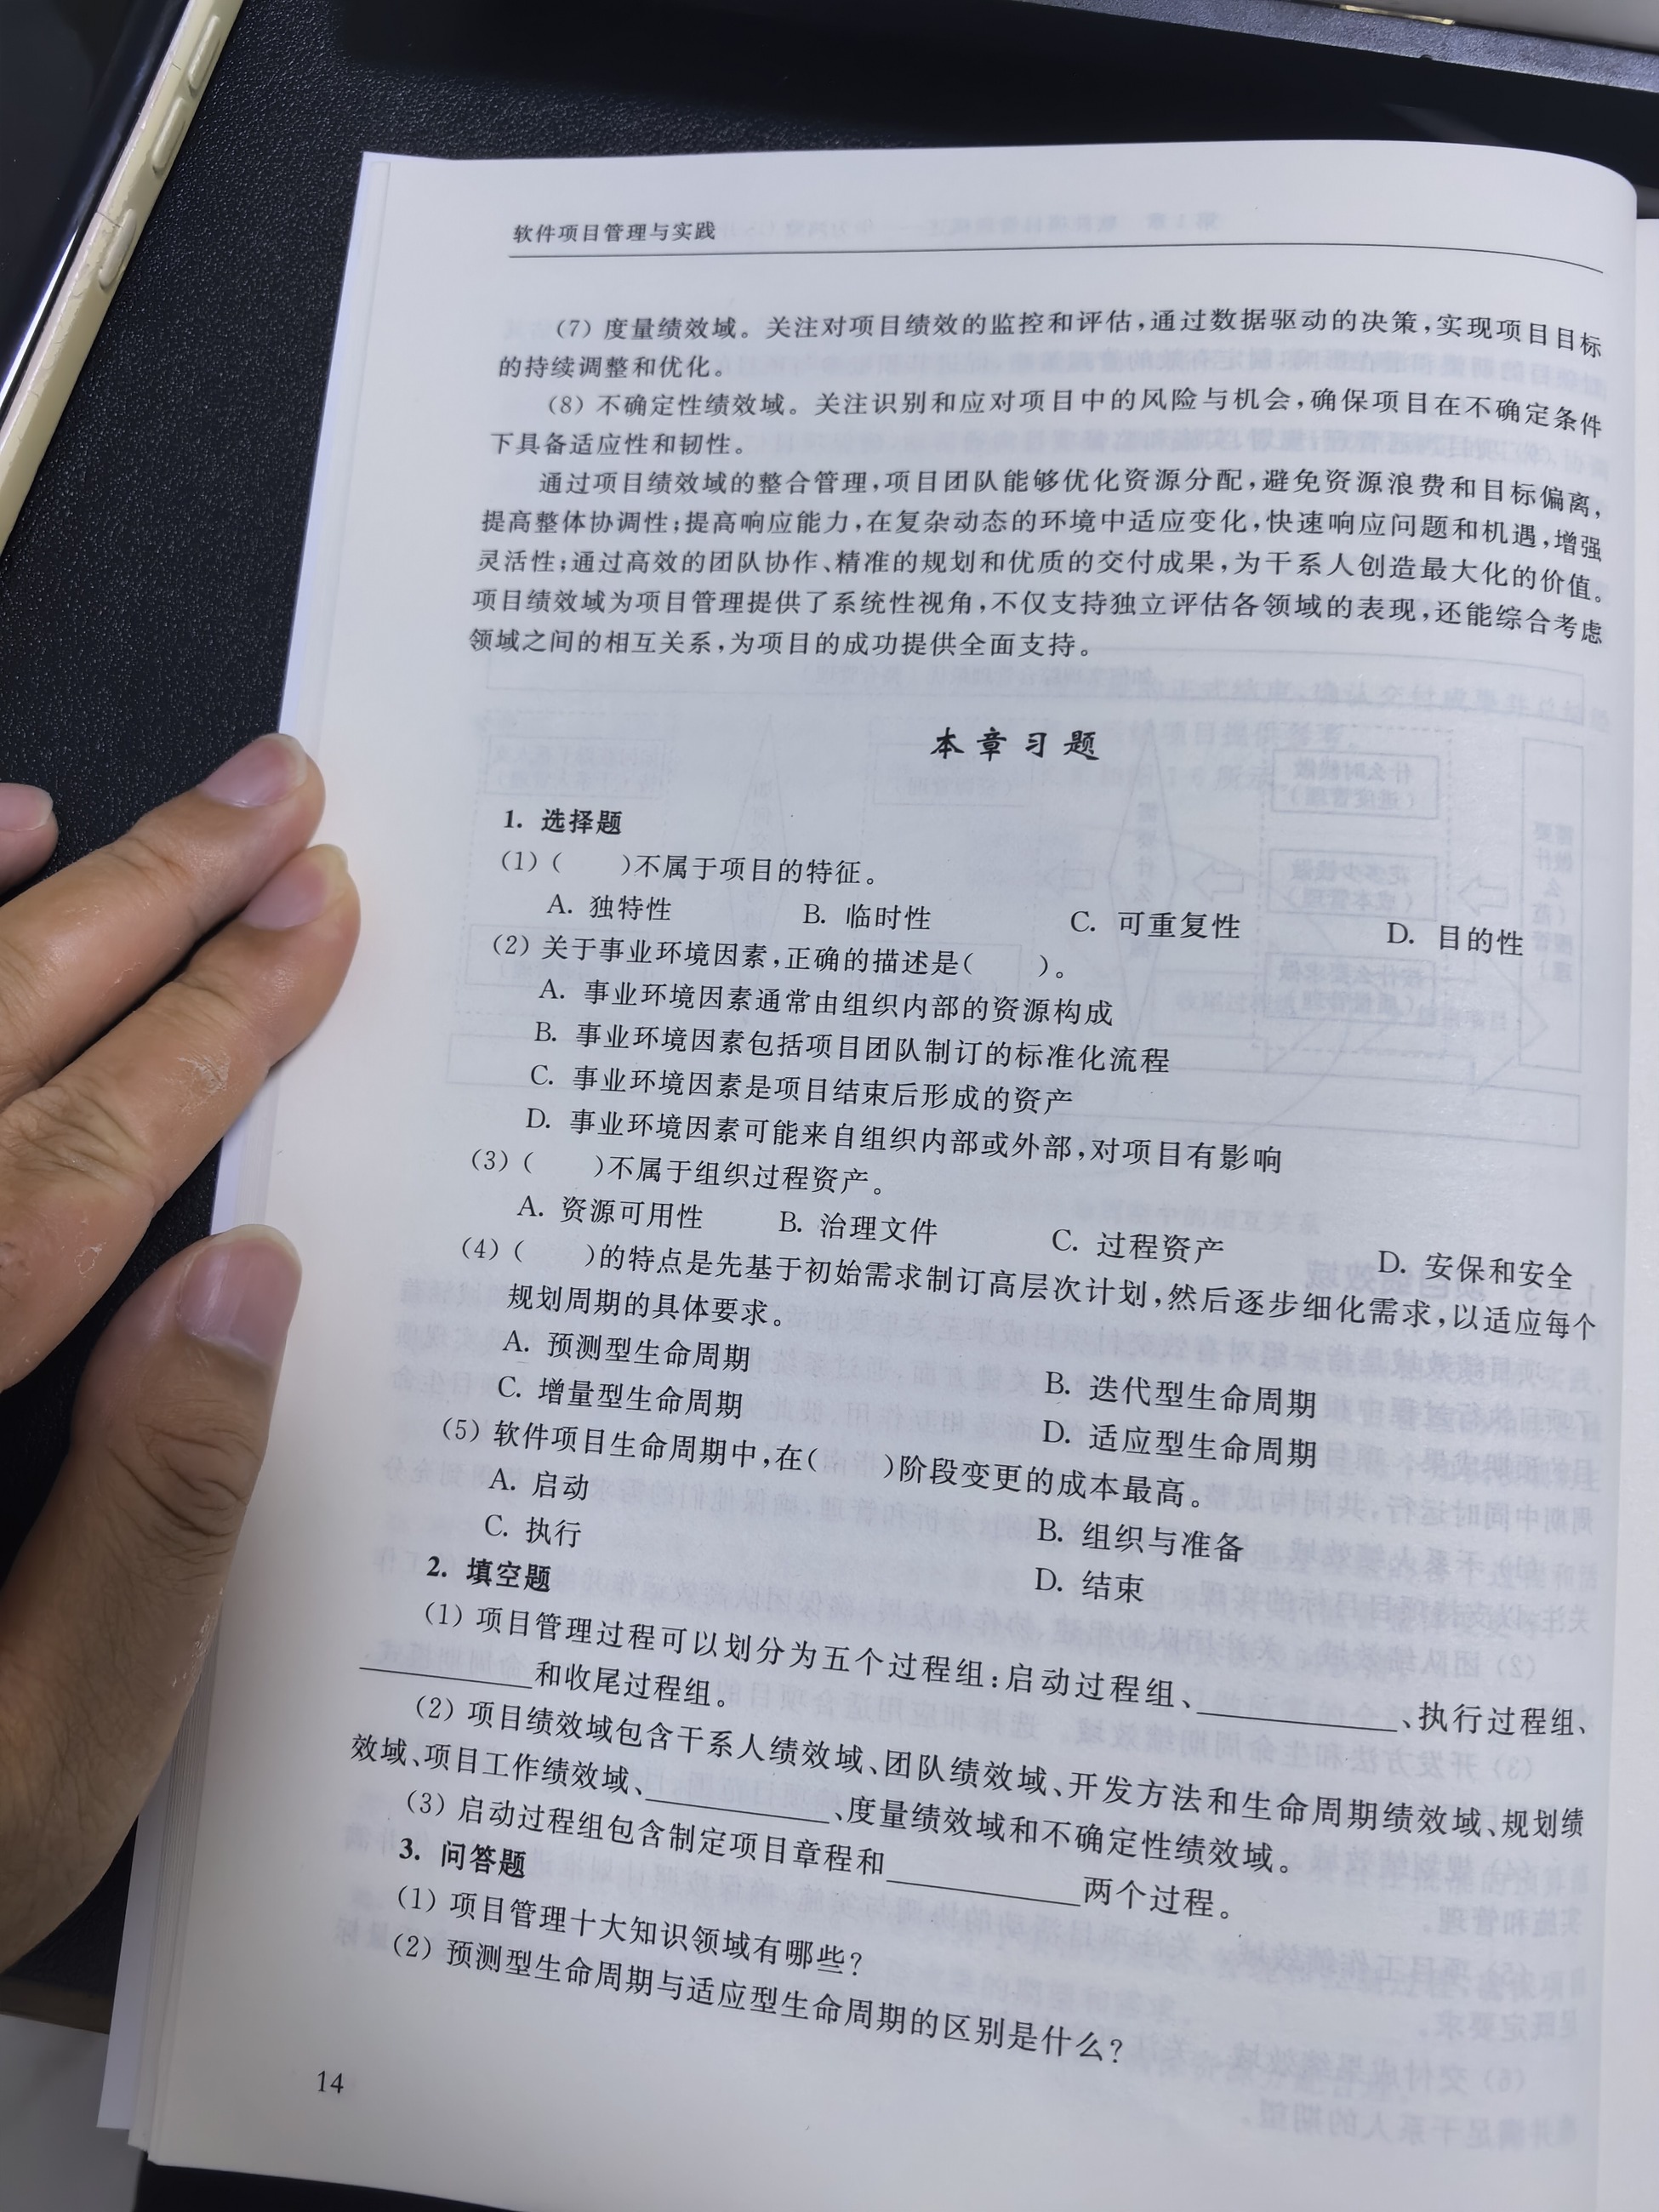 软件项目管理与实践
(7) 度量绩效域。关注对项目绩效的监控和评估,通过数据驱动的决策,实现项目目标
的持续调整和优化。
(8) 不确定性绩效域。关注识别和应对项目中的风险与机会,确保项目在不确定条件
下具备适应性和韧性。
通过项目绩效域的整合管理,项目团队能够优化资源分配,避免资源浪费和目标偏离,
提高整体协调性;提高响应能力,在复杂动态的环境中适应变化,快速响应问题和机遇,增强
灵活性;通过高效的团队协作、精准的规划和优质的交付成果,为干系人创造最大化的价值。
项目绩效域为项目管理提供了系统性视角,不仅支持独立评估各领域的表现,还能综合考虑
领域之间的相互关系,为项目的成功提供全面支持。
本章习题
1. 选择题
(1) (  )不属于项目的特征。
A. 独特性 B. 临时性 C. 可重复性 D. 目的性
(2) 关于事业环境因素,正确的描述是(  )。
A. 事业环境因素通常由组织内部的资源构成
B. 事业环境因素包括项目团队制订的标准化流程
C. 事业环境因素是项目结束后形成的资产
D. 事业环境因素可能来自组织内部或外部,对项目有影响
(3) (  )不属于组织过程资产。
A. 资源可用性 B. 治理文件 C. 过程资产 D. 安保和安全
(4) (  )的特点是先基于初始需求制订高层次计划,然后逐步细化需求,以适应每个
规划周期的具体要求。
A. 预测型生命周期 B. 迭代型生命周期
C. 增量型生命周期 D. 适应型生命周期
(5) 软件项目生命周期中,在(  )阶段变更的成本最高。
A. 启动 B. 组织与准备
C. 执行 D. 结束
2. 填空题
(1) 项目管理过程可以划分为五个过程组:启动过程组、________、执行过程组、
________和收尾过程组。
(2) 项目绩效域包含干系人绩效域、团队绩效域、开发方法和生命周期绩效域、规划绩
效域、项目工作绩效域、________、度量绩效域和不确定性绩效域。
(3) 启动过程组包含制定项目章程和________两个过程。
3. 问答题
(1) 项目管理十大知识领域有哪些?
(2) 预测型生命周期与适应型生命周期的区别是什么?
14